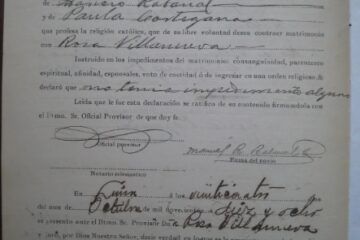 de
y de Paula
que profesa la religión católica, que de su libre voluntad desea contraer matrimonio
con Rosa Villanueva
Instruido en los impedimentos del matrimonio consanguinidad, parentesco
espiritual, afinidad, esponsales, voto de castidad ó de ingresar en una orden religiosa, &
declaró que no tenía impedimento alguno
Leída que le fué esta declaración se ratificó de su contenido firmándola con
el Iltmo. Sr. Oficial Provisor de que doy fe.
Oficial provisor
Manuel R.
Firma del novio
Notario eclesiástico
En Lima á los veinticuatro
del mes de Octubre de mil novecientos diez y ocho
presente ante el Iltmo. Sr. Provisor Da Rosa Villanueva
por Dios Nuestro Señor, decir verdad en